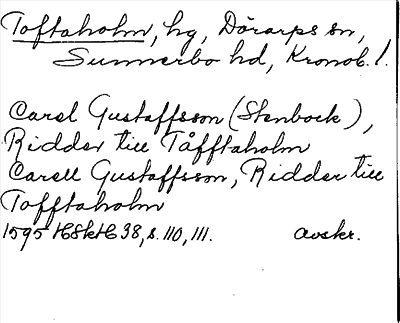 Toftaholm, hg, Dörarps sn,
Sunnerbo hd, Kronob. l.
Carel Gustaffsson (Stenbock),
Ridder till Tåfftaholm
Carell Gustaffsson, Ridder till
Tofftaholm
1595 HSkH 38, s. 110, 111. avskr.